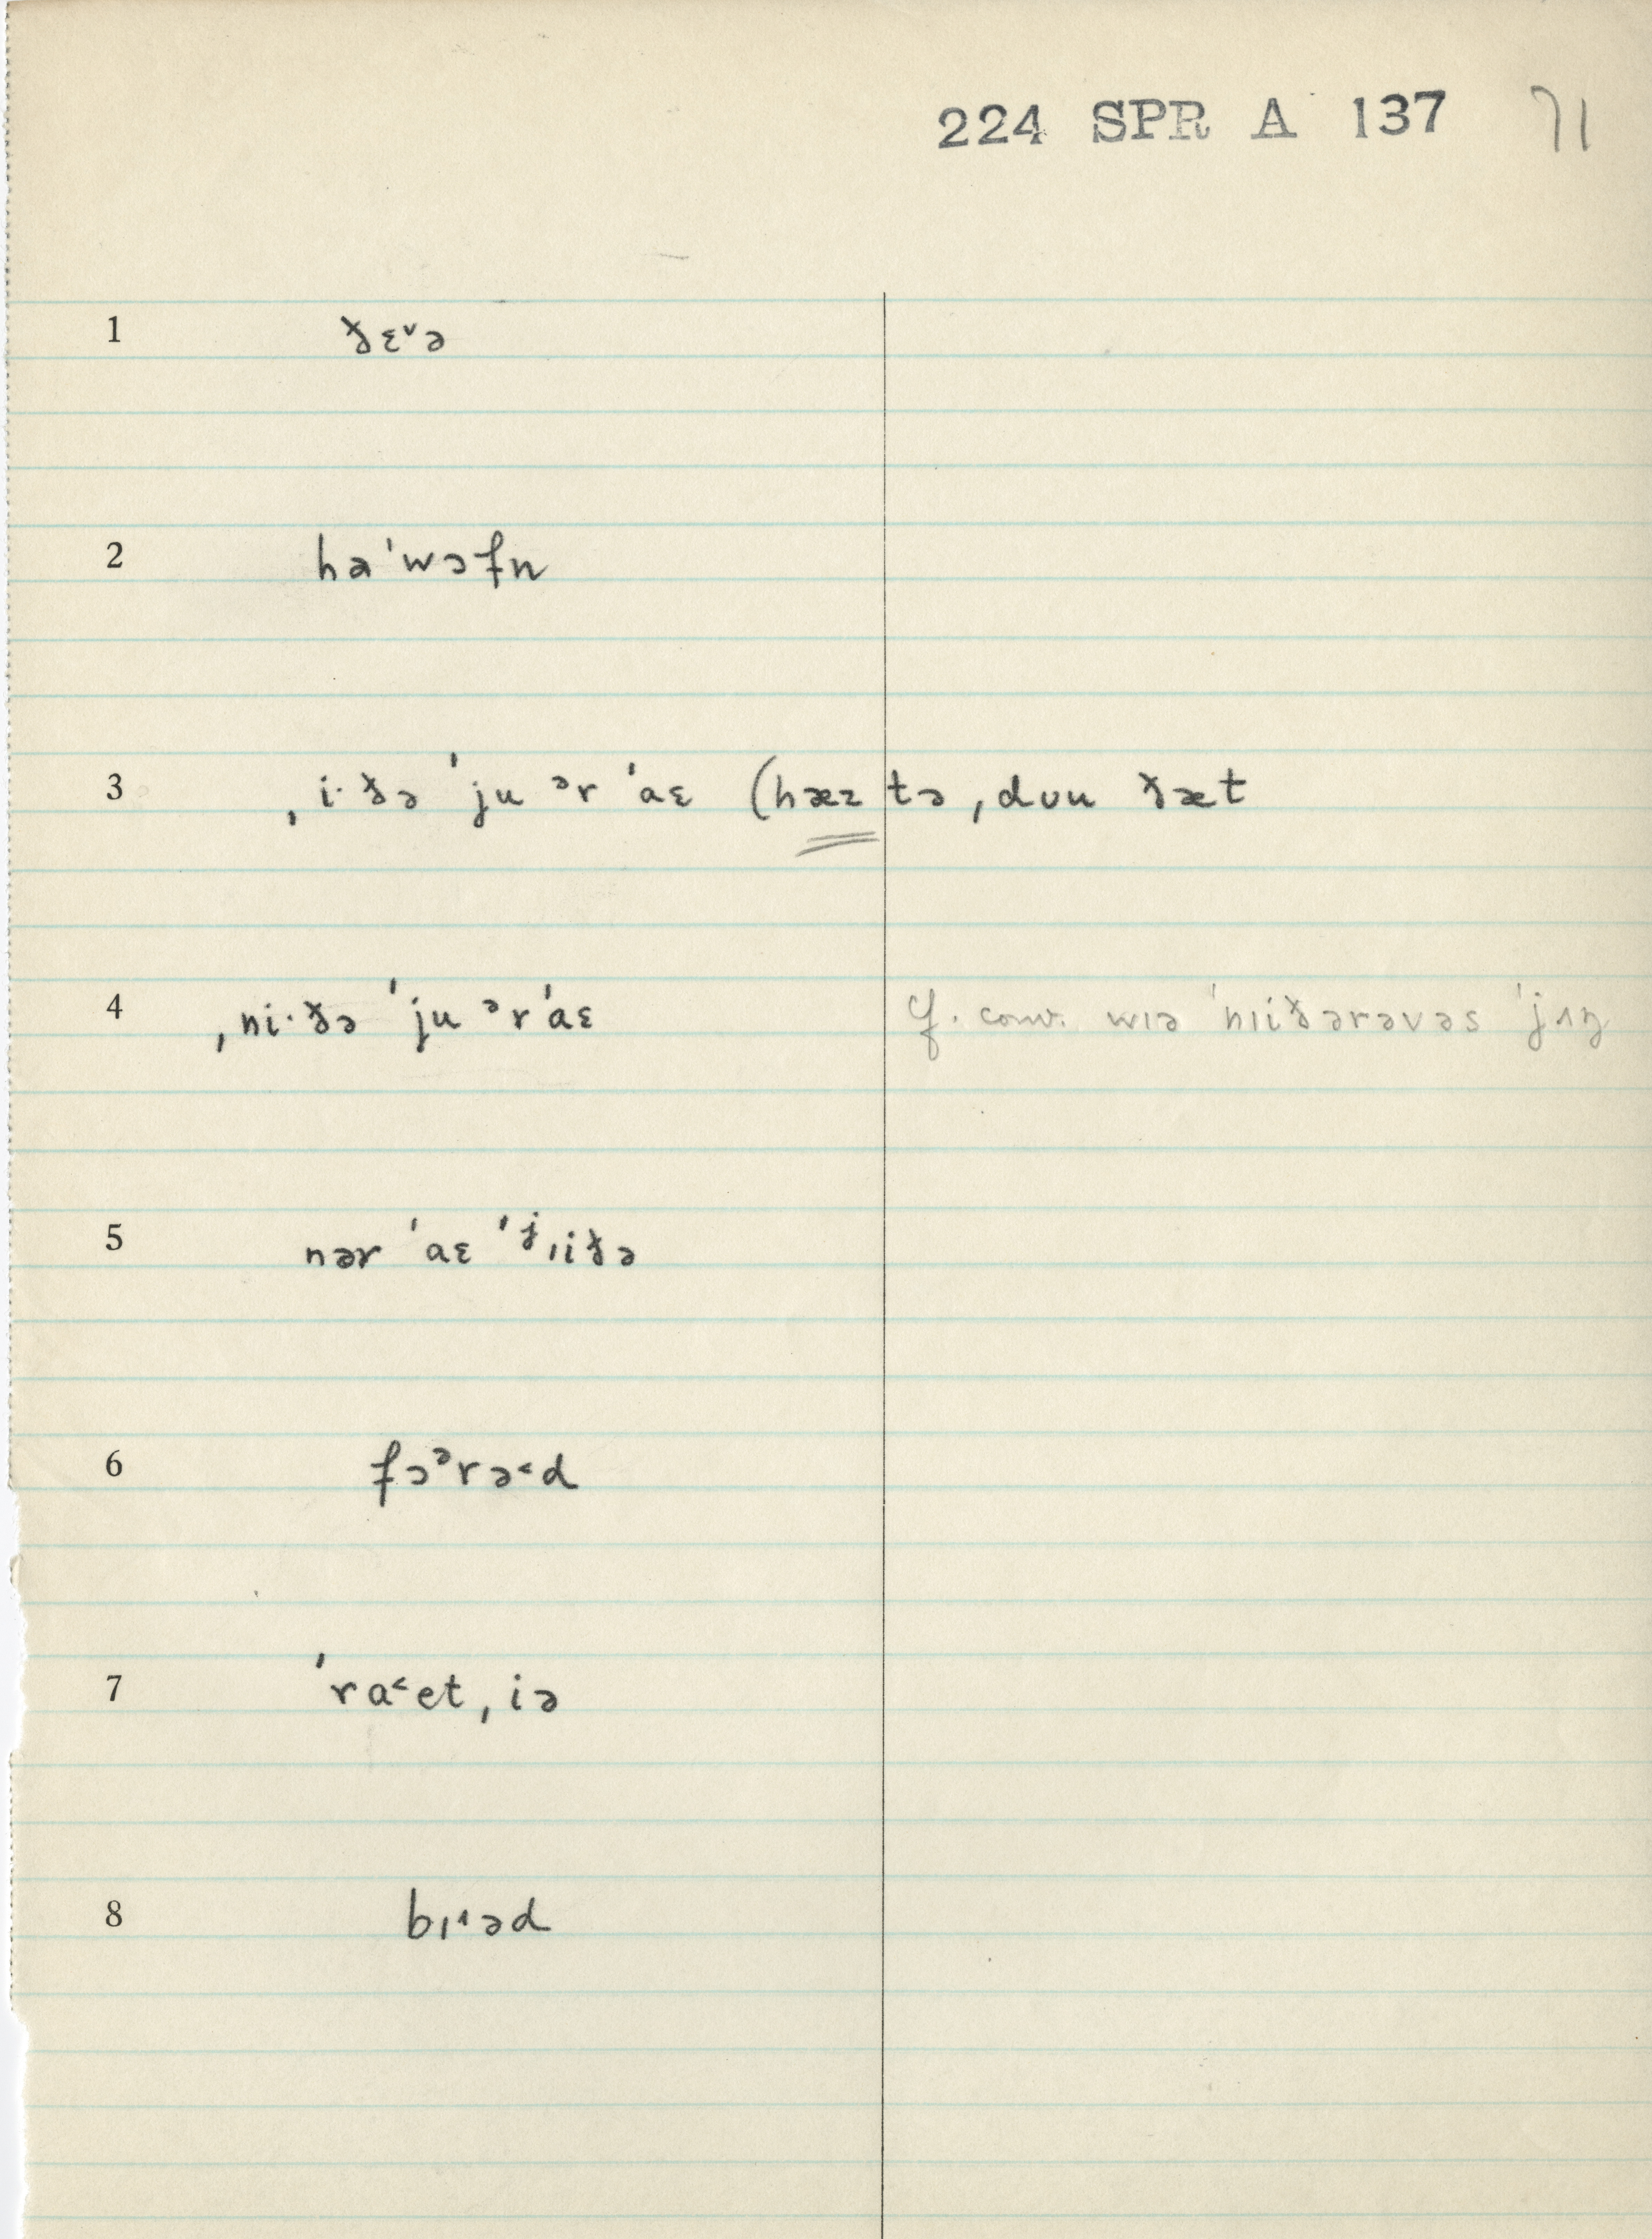 224 SPR A 137 71
1 ðɛ˅ə
2 hə ˈwɔfn
3 ˌi·ðə ˈju ᵊr ˈaɛ (hæz tə ˌdʊu ðæt
4 ˌni·ðə ˈju ᵊr ˈaɛ cf. conv. wɪə ˈnɪiðərəvəs ˈjʌŋ
5 nər ˈaɛ ˈʲɪiðə
6 fɔᵊrə˂d
7 ˈra˂et ˌiə
8 bɪ˔əd